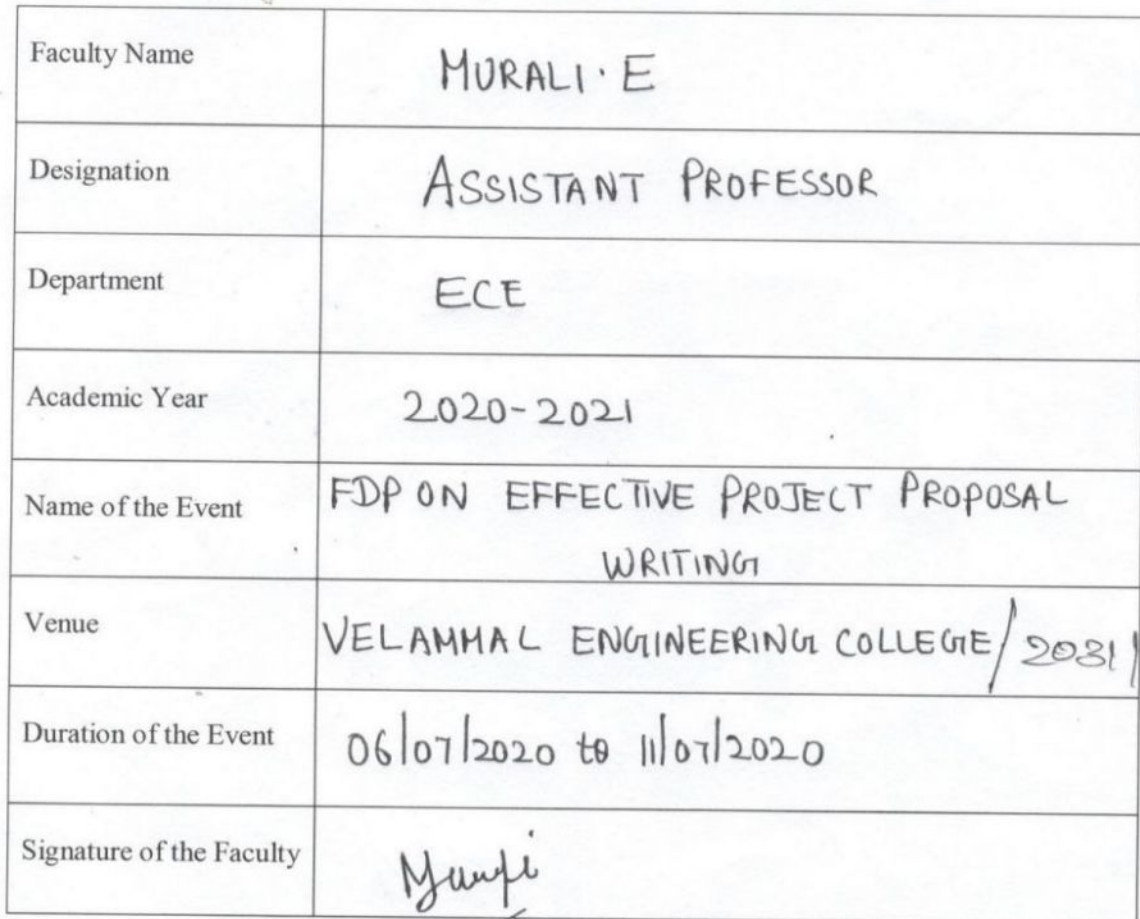 Faculty Name MURALI. E
Designation ASSISTANT PROFESSOR
Department ECE
Academic Year 2020-2021
Name of the Event FDP ON EFFECTIVE PROJECT PROPOSAL
WRITING
Venue VELAMMAL ENGINEERING COLLEGE/2031/
Duration of the Event 06/07/2020 to 11/07/2020
Signature of the Faculty